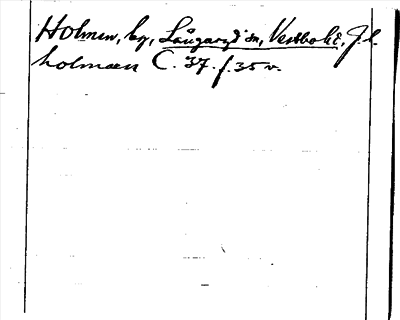 Holmen, by, Långaryd sn, Västbo hd, J. l.
holmæn C. 37. f. 35 v.